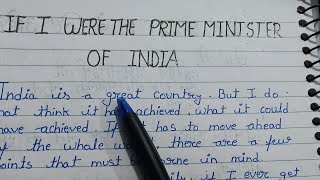 IF I WERE THE PRIME MINISTER
OF INDIA
India is a great country. But I do
not think it has achieved. what it could
have achieved. If has to move ahead
of the whole there are a few
points that must be borne in mind
if I ever get